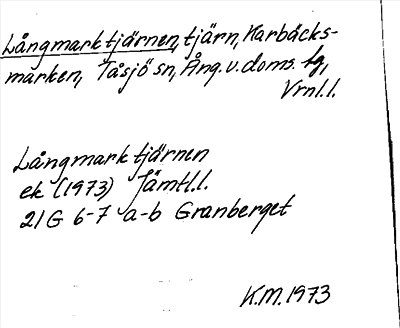 Långmarktjärnen, tjärn, Karbäcks-
marken, Tåsjö sn, Ång. v. doms. tg,
Vrnl.l.
Långmarktjärnen
ek (1973) Jämtl.l.
21G 6-7 a-b Granberget
K.M. 1973